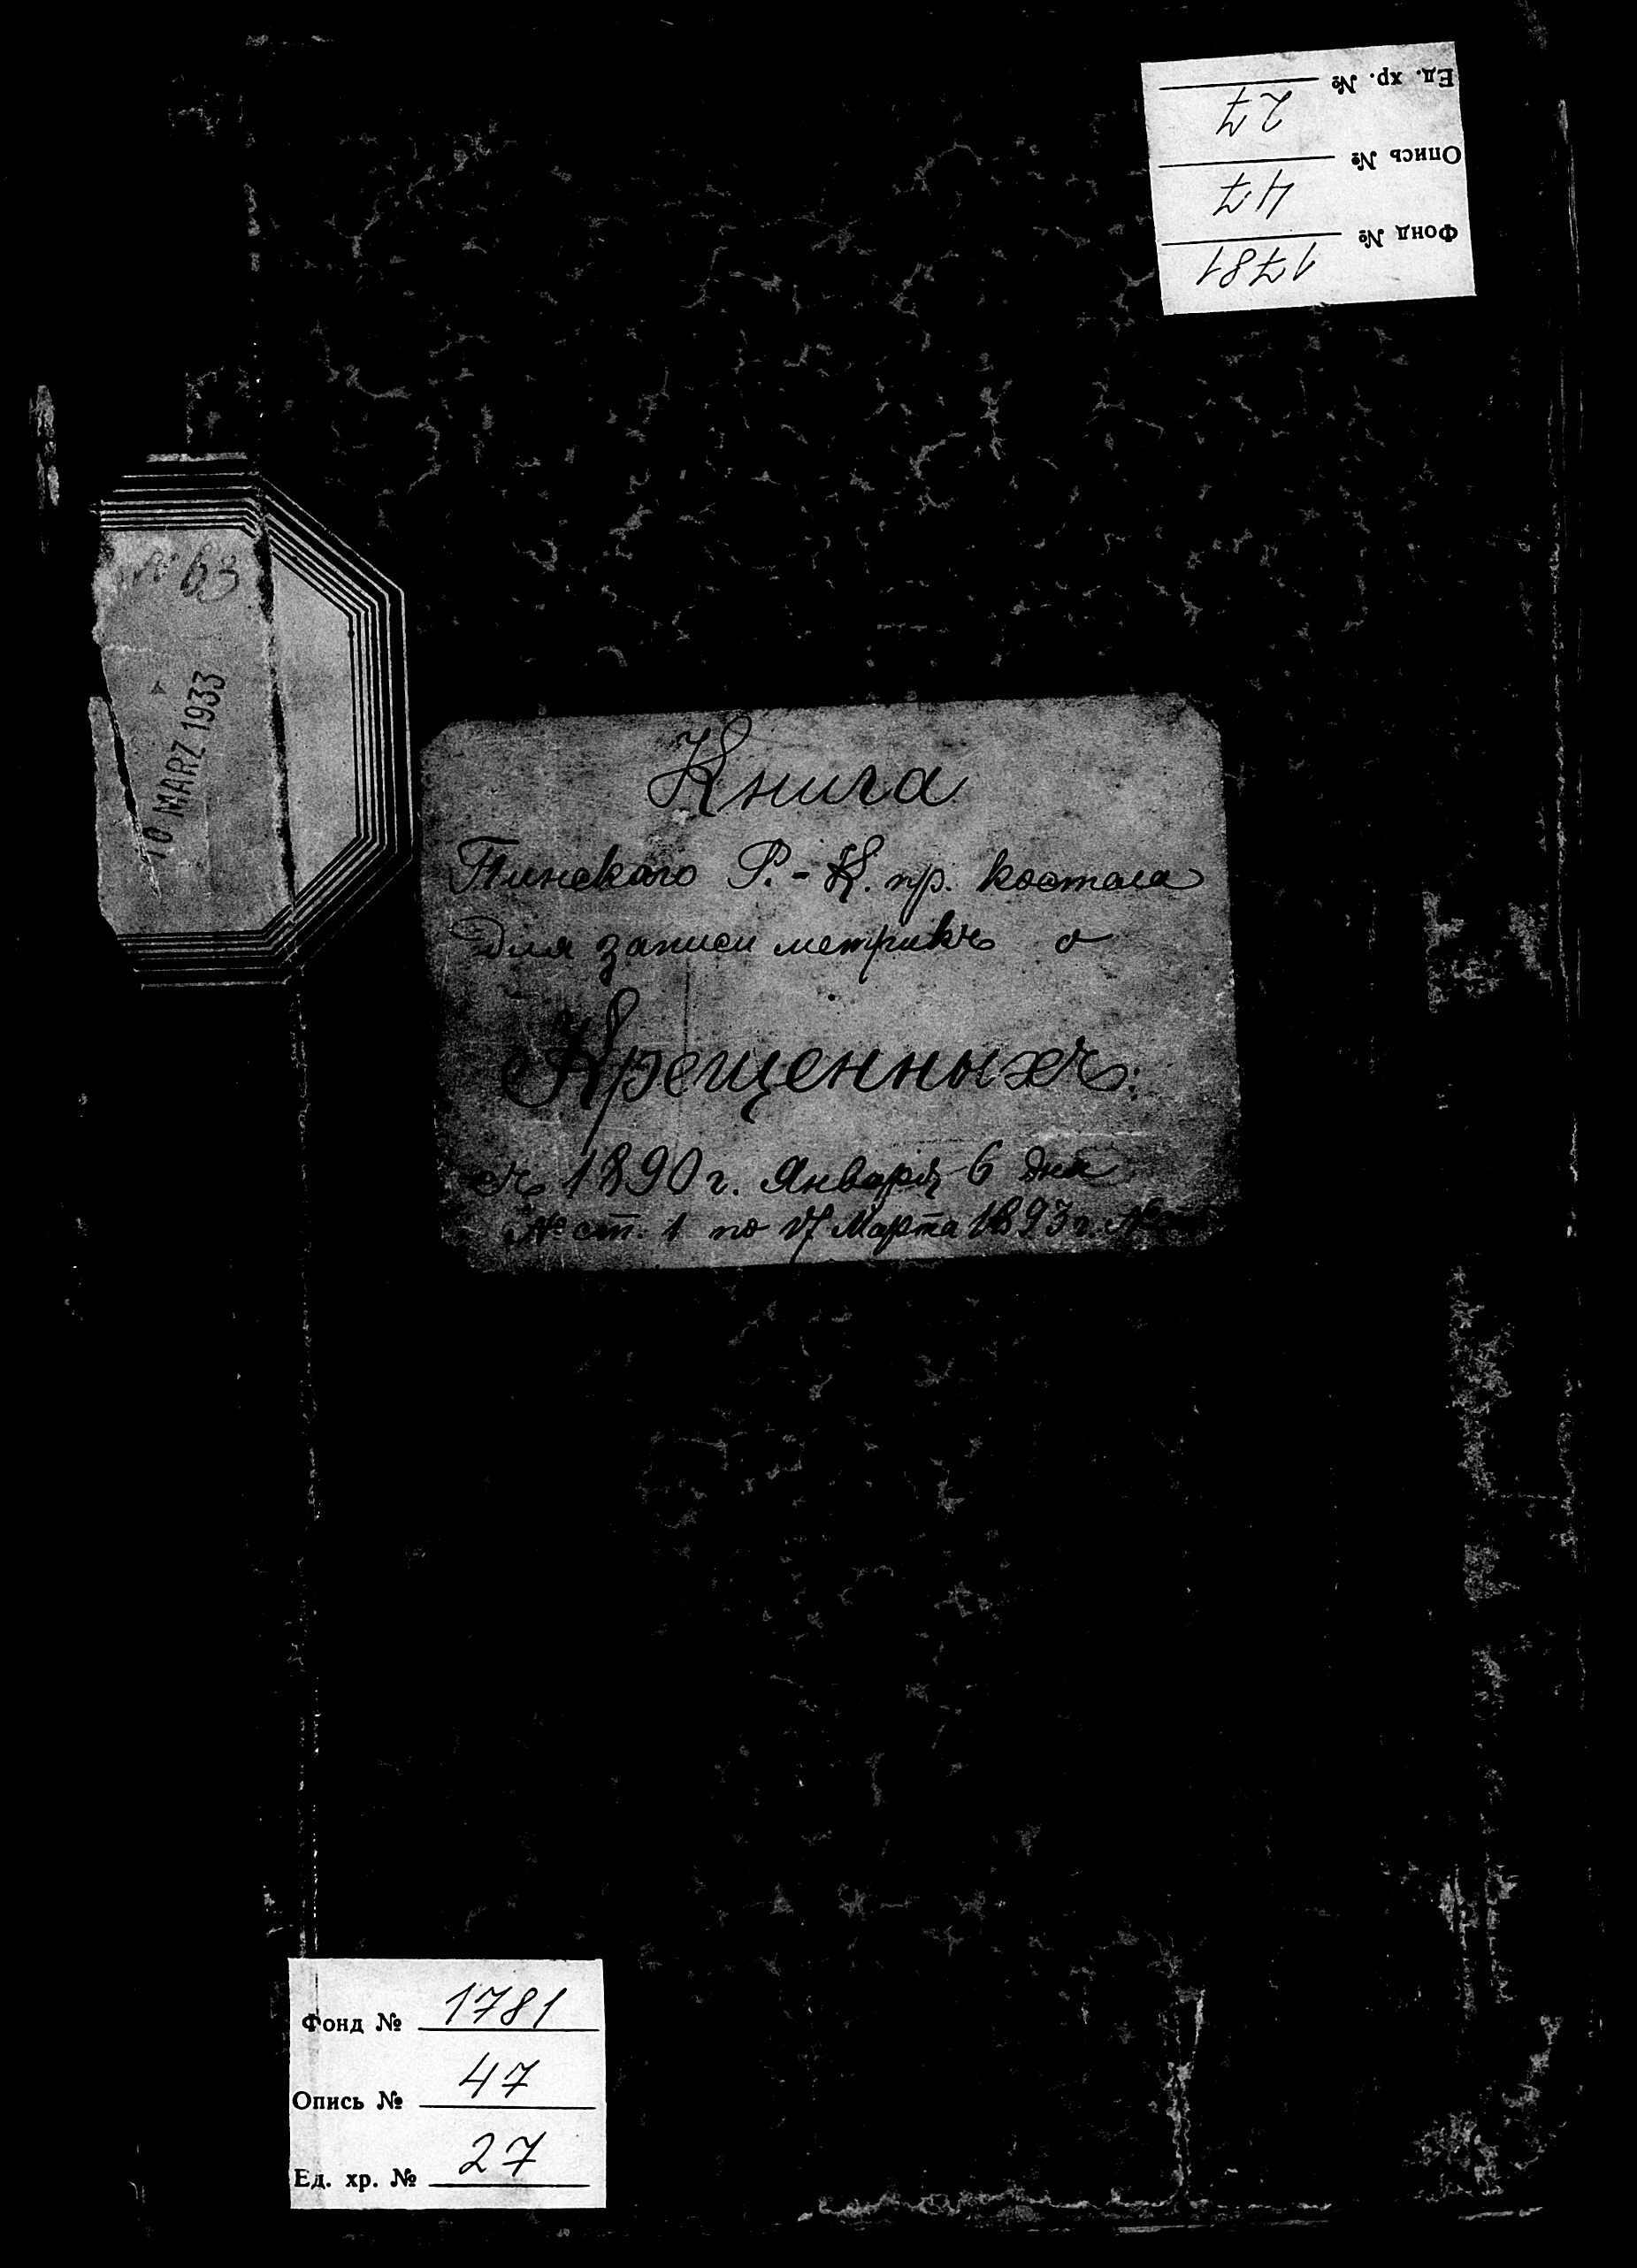 Ед. хр. № 27
Опись № 47
Фонд № 1781
№ 63
10 MARZ 1933
Книга
Пинскаго Р.-К. пр. костела
для записи метрикъ о
Крещенныхъ:
съ 1890 г. Января 6 дня
№ ст. 1 по 17 Марта 1893 г. №
Фонд № 1781
Опись № 47
Ед. хр. № 27